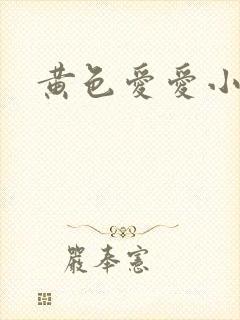 黄色爱爱小
严奉宪